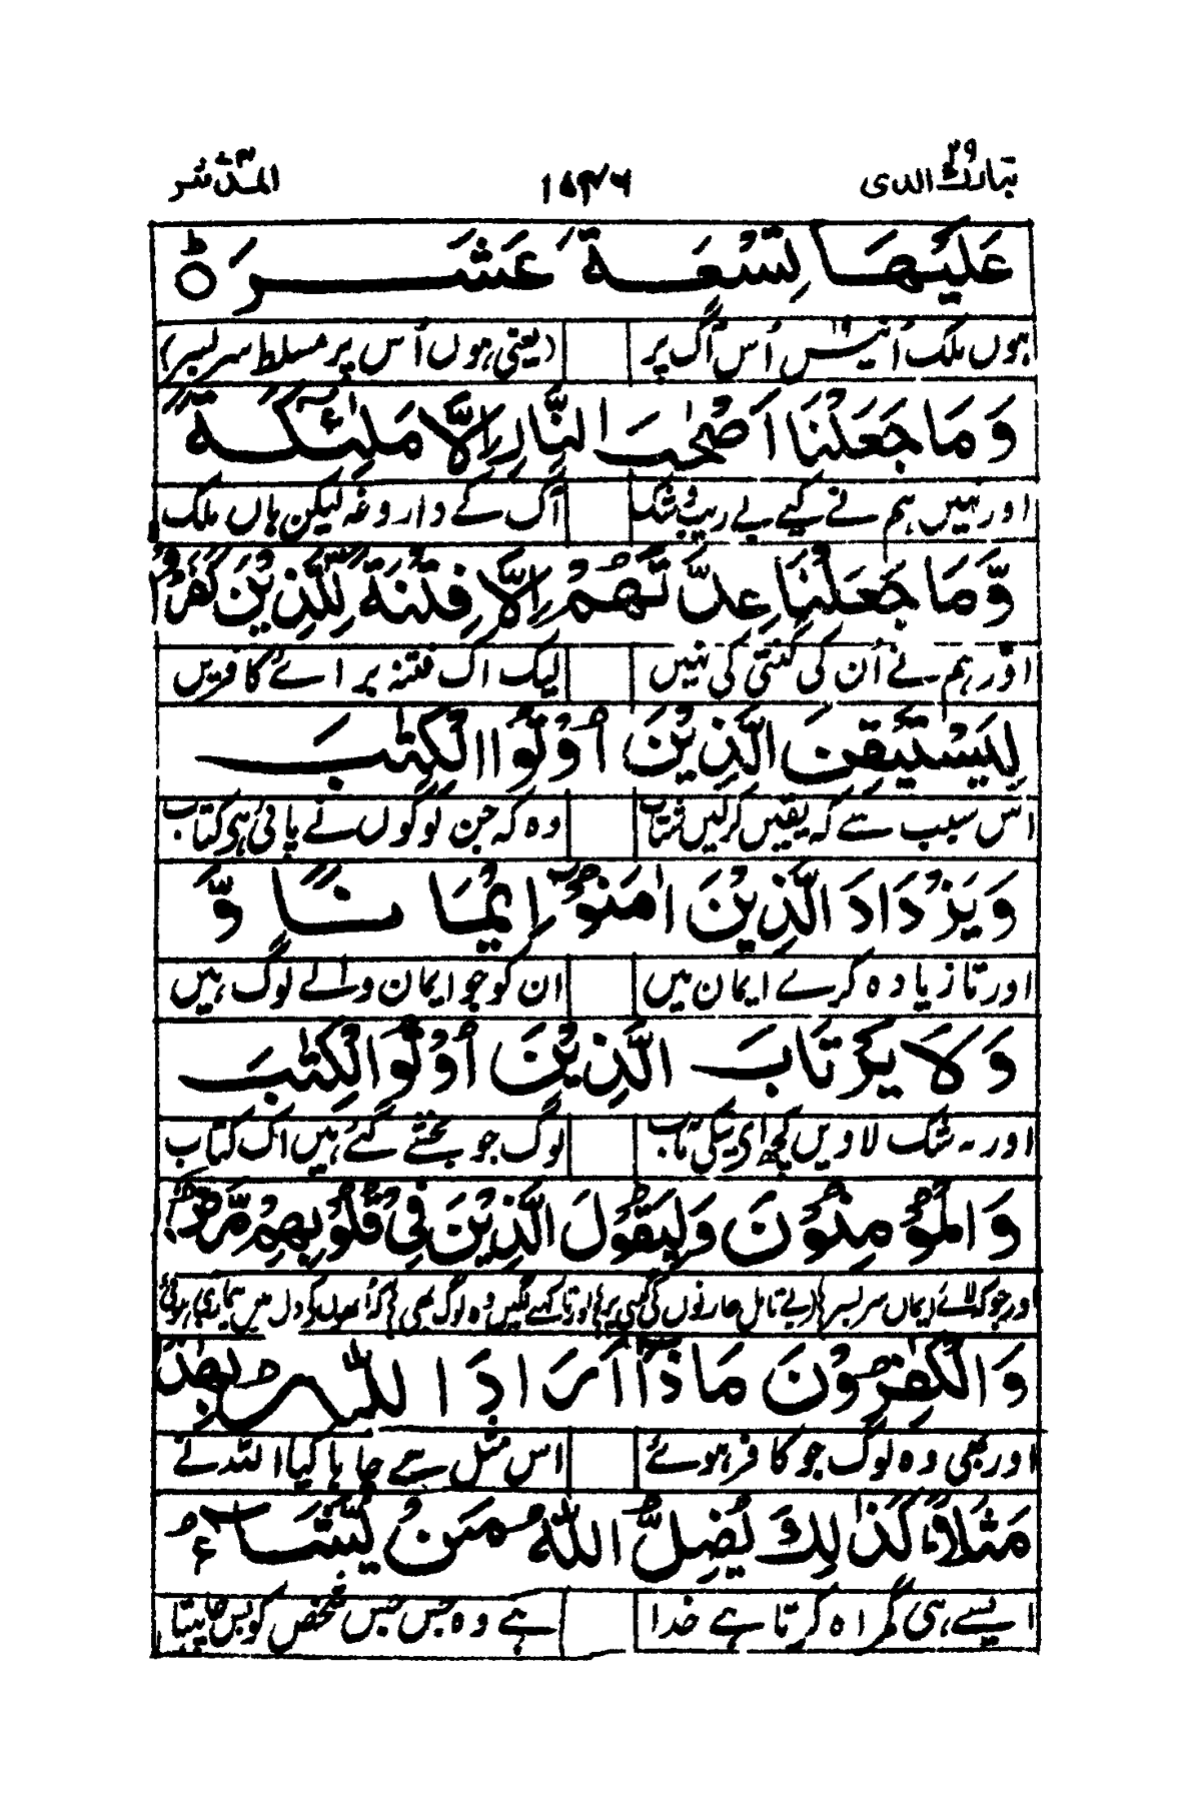 تبارك الذی ۲۹ ۱۵۴۶ المدثر ۷۴
عَلَيْهَا تِسْعَةَ عَشَرَ ۝ؕ
ہوں ملک اُنیس اُس آگ پر (یعنی ہوں اُس پر مسلط سر بسر)
وَمَا جَعَلْنَا اَصْحٰبَ النَّارِ اِلَّا مَلٰٓئِكَةً
اور نہیں ہم نے کیے بے ریب و شک آگ کے داروغہ لیکن ہاں ملک
وَّمَا جَعَلْنَا عِدَّتَهُمْ اِلَّا فِتْنَةً لِّلَّذِيْنَ كَفَرُوْا
اور ہم نے اُن کی گنتی کی نہیں لیک اک فتنہ برائے کافریں
لِيَسْتَيْقِنَ الَّذِيْنَ اُوْتُوا الْكِتٰبَ
اس سبب سے کہ یقیں کرلیں شتاب وہ کہ جن لوگوں نے پائی ہی کتاب
وَيَزْدَادَ الَّذِيْنَ اٰمَنُوْٓا اِيْمَانًا وَّ
اور تا زیادہ کرے ایمان میں ان کو جو ایمان والے لوگ ہیں
وَلَا يَرْتَابَ الَّذِيْنَ اُوْتُوا الْكِتٰبَ
اور نہ شک لاویں کچھ لوگ جو بخشے گئے ہیں اک کتاب
وَالْمُؤْمِنُوْنَ وَلِيَقُوْلَ الَّذِيْنَ فِيْ قُلُوْبِهِمْ مَّرَضٌ
اور جو کہ لائے ایماں سر بسر (بے تامل اور تا کہنے لگیں وہ لوگ بھی کہ دل میں بیماری
وَّالْكٰفِرُوْنَ مَاذَآ اَرَادَ اللّٰهُ بِهٰذَا
اور بھی وہ لوگ جو کافر ہوئے اس مثل سے چاہا کیا اللہ نے
مَثَلًا ؕ كَذٰلِكَ يُضِلُّ اللّٰهُ مَنْ يَّشَآءُ
ایسے ہی گمراہ کرتا ہے خدا ہے وہ جس جس شخص کو بس چاہتا